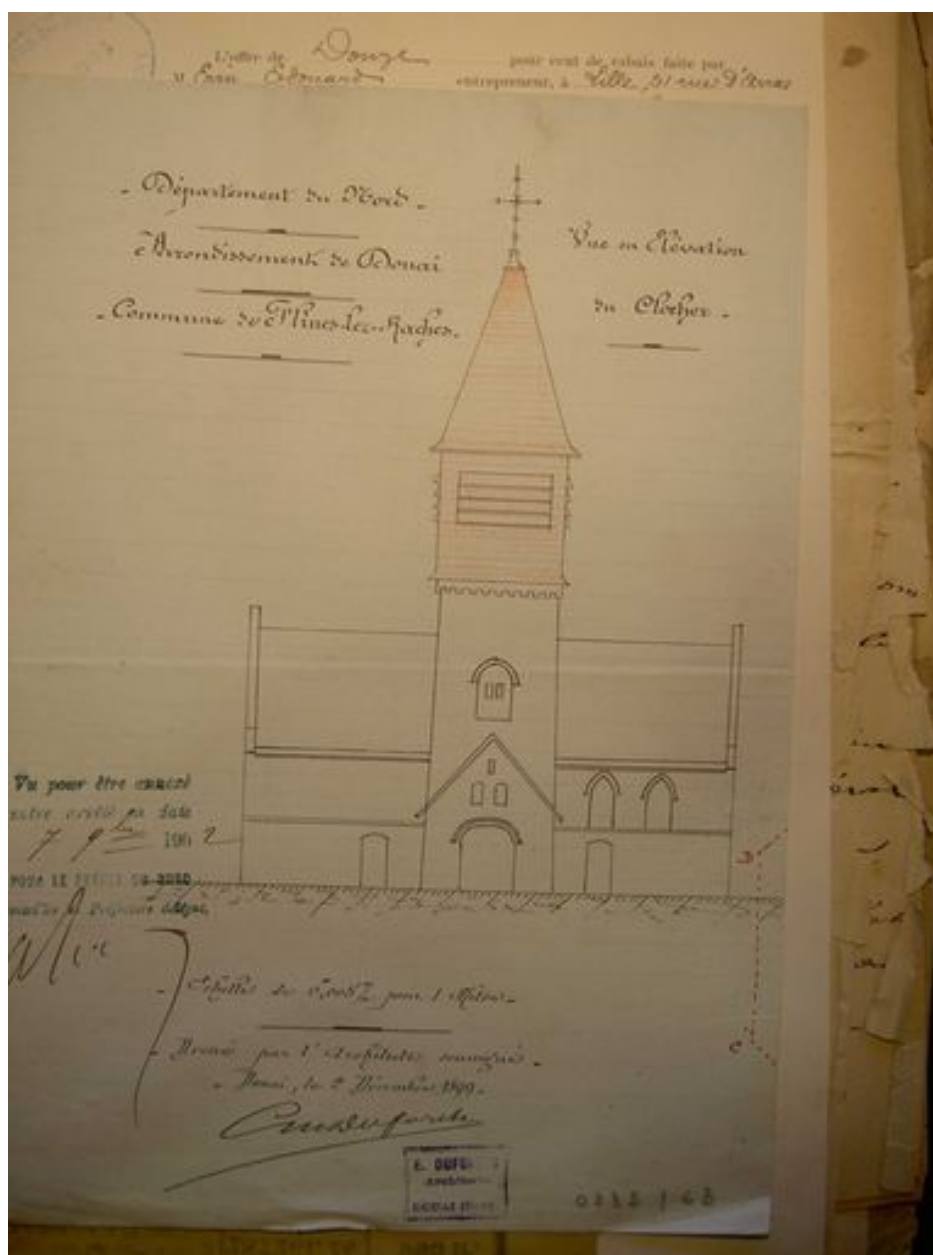 L'offre de Douze pour cent de rabais faite par
M Édouard entrepreneur, à Lille, 51 rue d'Arras
- Département du Nord -
Arrondissement de Douai
- Commune de Flines-lez-Raches -
Vue en Élévation
du Clocher -
Vu pour être annexé
notre arrêté en date
7 9bre 1902
POUR LE PRÉFET DU NORD
- Échelle de 0,005 pour 1 Mètre -
- Dressé par l'Architecte soussigné -
- Douai, le 2 Décembre 1899 -
E. DUF
Architecte
DOUAI
D
C